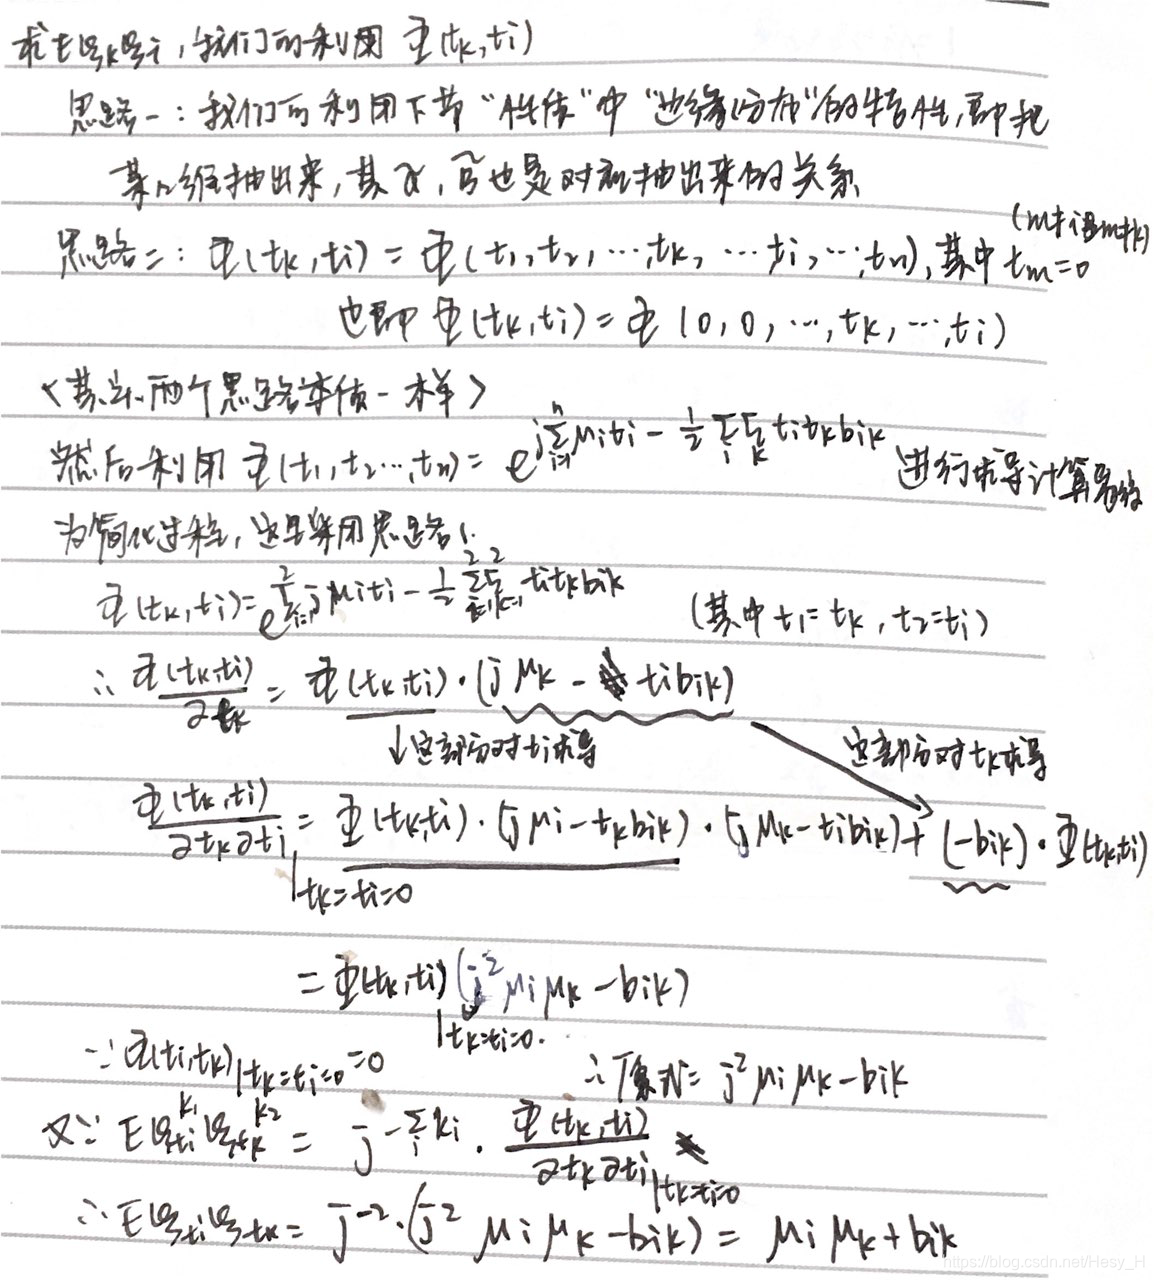 求Eξkξi,我们可利用 Φ(tk,ti)
思路一:我们可利用下节“性质”中“边缘分布”的特性,即把
某n维抽出来,其 也是对应抽出来的关系
(m≠i且m≠k)
思路二:Φ(tk,ti)=Φ(t1,t2,…,tk,…,ti,…,tn),其中 tm=0
也即 Φ(tk,ti)=Φ(0,0,…,tk,…,ti)
<其实两个思路本质一样>
然后利用 Φ(t1,t2…,tn)= e^{j∑_{i=1}^{n}μiti - 1/2 ∑_i∑_k titkbik} 进行求导计算即可
为简化过程,这里采用思路1.
Φ(tk,ti)= e^{∑_{i=1}^{2} jμiti - 1/2 ∑_{i=1}^{2}∑_{k=1}^{2} titkbik} (其中 t1=tk,t2=ti)
∴ Φ(tk,ti)/∂tk = Φ(tk,ti)·(jμk - tibik)
↓这部分对ti求导 这部分对tk求导
Φ(tk,ti)/∂tk∂ti |tk=ti=0 = Φ(tk,ti)·(jμi-tkbik)·(jμk-tibik)+(-bik)·Φ(tk,ti)
= Φ(tk,ti)(j²μiμk-bik) |tk=ti=0.
∵ Φ(ti,tk)|tk=ti=0 =0 ∴原式= j²μiμk-bik
又∵ Eξti^{k1}ξtk^{k2} = j^{-∑_i ki} · Φ(tk,ti)/∂tk∂ti |tk=ti=0
∴ Eξtiξtk = j^{-2}·(j²μiμk-bik) = μiμk+bik
https://blog.csdn.net/Hesy_H